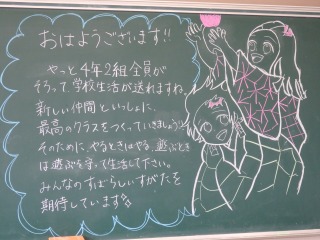 おはようございます!!
やっと4年2組全員が
そろって学校生活が送れますね。
新しい仲間といっしょに、
最高のクラスをつくっていきましょう!!
そのために、やるときはやる、遊ぶとき
は遊ぶを守って生活して下さい。
みんなのすばらしいすがたを
期待しています。